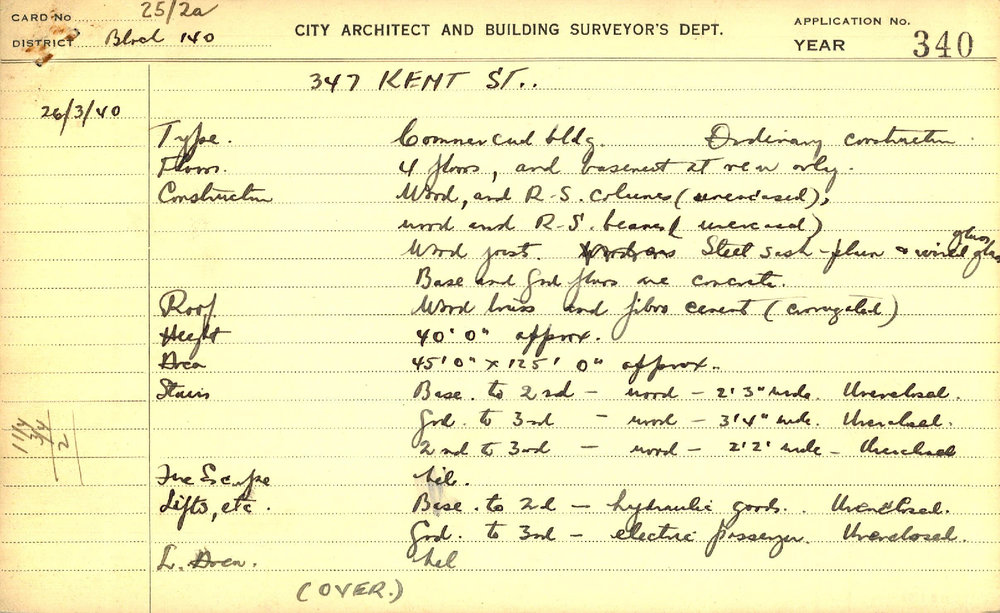 CARD No 25/2a
DISTRICT Block 140
CITY ARCHITECT AND BUILDING SURVEYOR'S DEPT.
APPLICATION No.
YEAR 340
347 KENT ST..
26/3/40
Type. Commercial bldg. Ordinary construction.
Floors. 4 floors, and basement at rear only.
Construction Wood, and R.S. columns (unencased),
wood and R.S. beams (unencased)
Wood joist. Steel sash - plain & wired glass
Base and Grd floors are concrete.
Roof Wood truss and fibro cement (corrugated)
Height 40' 0" approx.
Area 45' 0" x 125' 0" approx..
Stairs Base. to 2nd - wood - 2' 3" wide. Unenclosed.
Grd. to 3rd - wood - 3' 4" wide. Unenclosed.
2nd to 3rd - wood - 2' 2' wide - Unenclosed
11/4
3/4
2
Fire Escape Nil.
Lifts, etc. Base. to 2d - hydraulic goods.. Unenclosed.
Grd. to 3rd - electric passenger. Unenclosed.
L. Area. Nil
(OVER.)